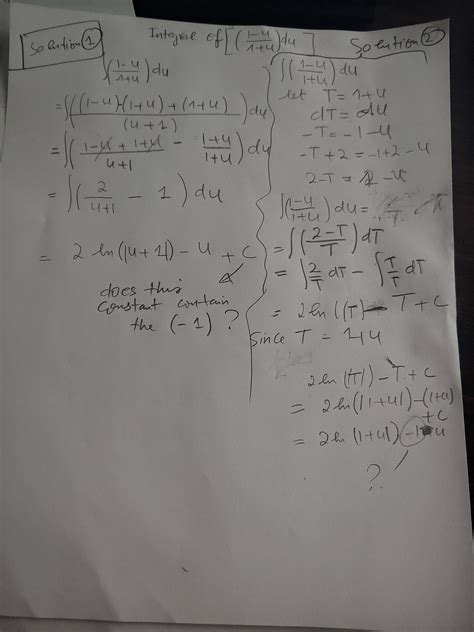 Solution ①
Integral of [(1-u/1+u)du]
Solution ②
∫(1-u/1+u)du
= ∫(((1-u)-(1+u)+(1+u))/(u+1))du
= ∫(1-u+1+u/u+1 - 1+u/1+u)du
= ∫(2/u+1 - 1)du
= 2 ln(|u+1|) - u + C
does this
constant contain
the (-1) ?
∫(1-u/1+u)du
let T = 1+u
dT = du
-T = -1-u
-T+2 = -1+2-u
2-T = 1-u
∫(1-u/1+u)du =
= ∫(2-T/T)dT
= ∫2/T dT - ∫T/T dT
= 2 ln(|T|) - T + C
Since T = 1+u
2 ln|T| - T + C
= 2 ln(|1+u|) - (1+u)
+ C
= 2 ln(1+u) -1-u
?